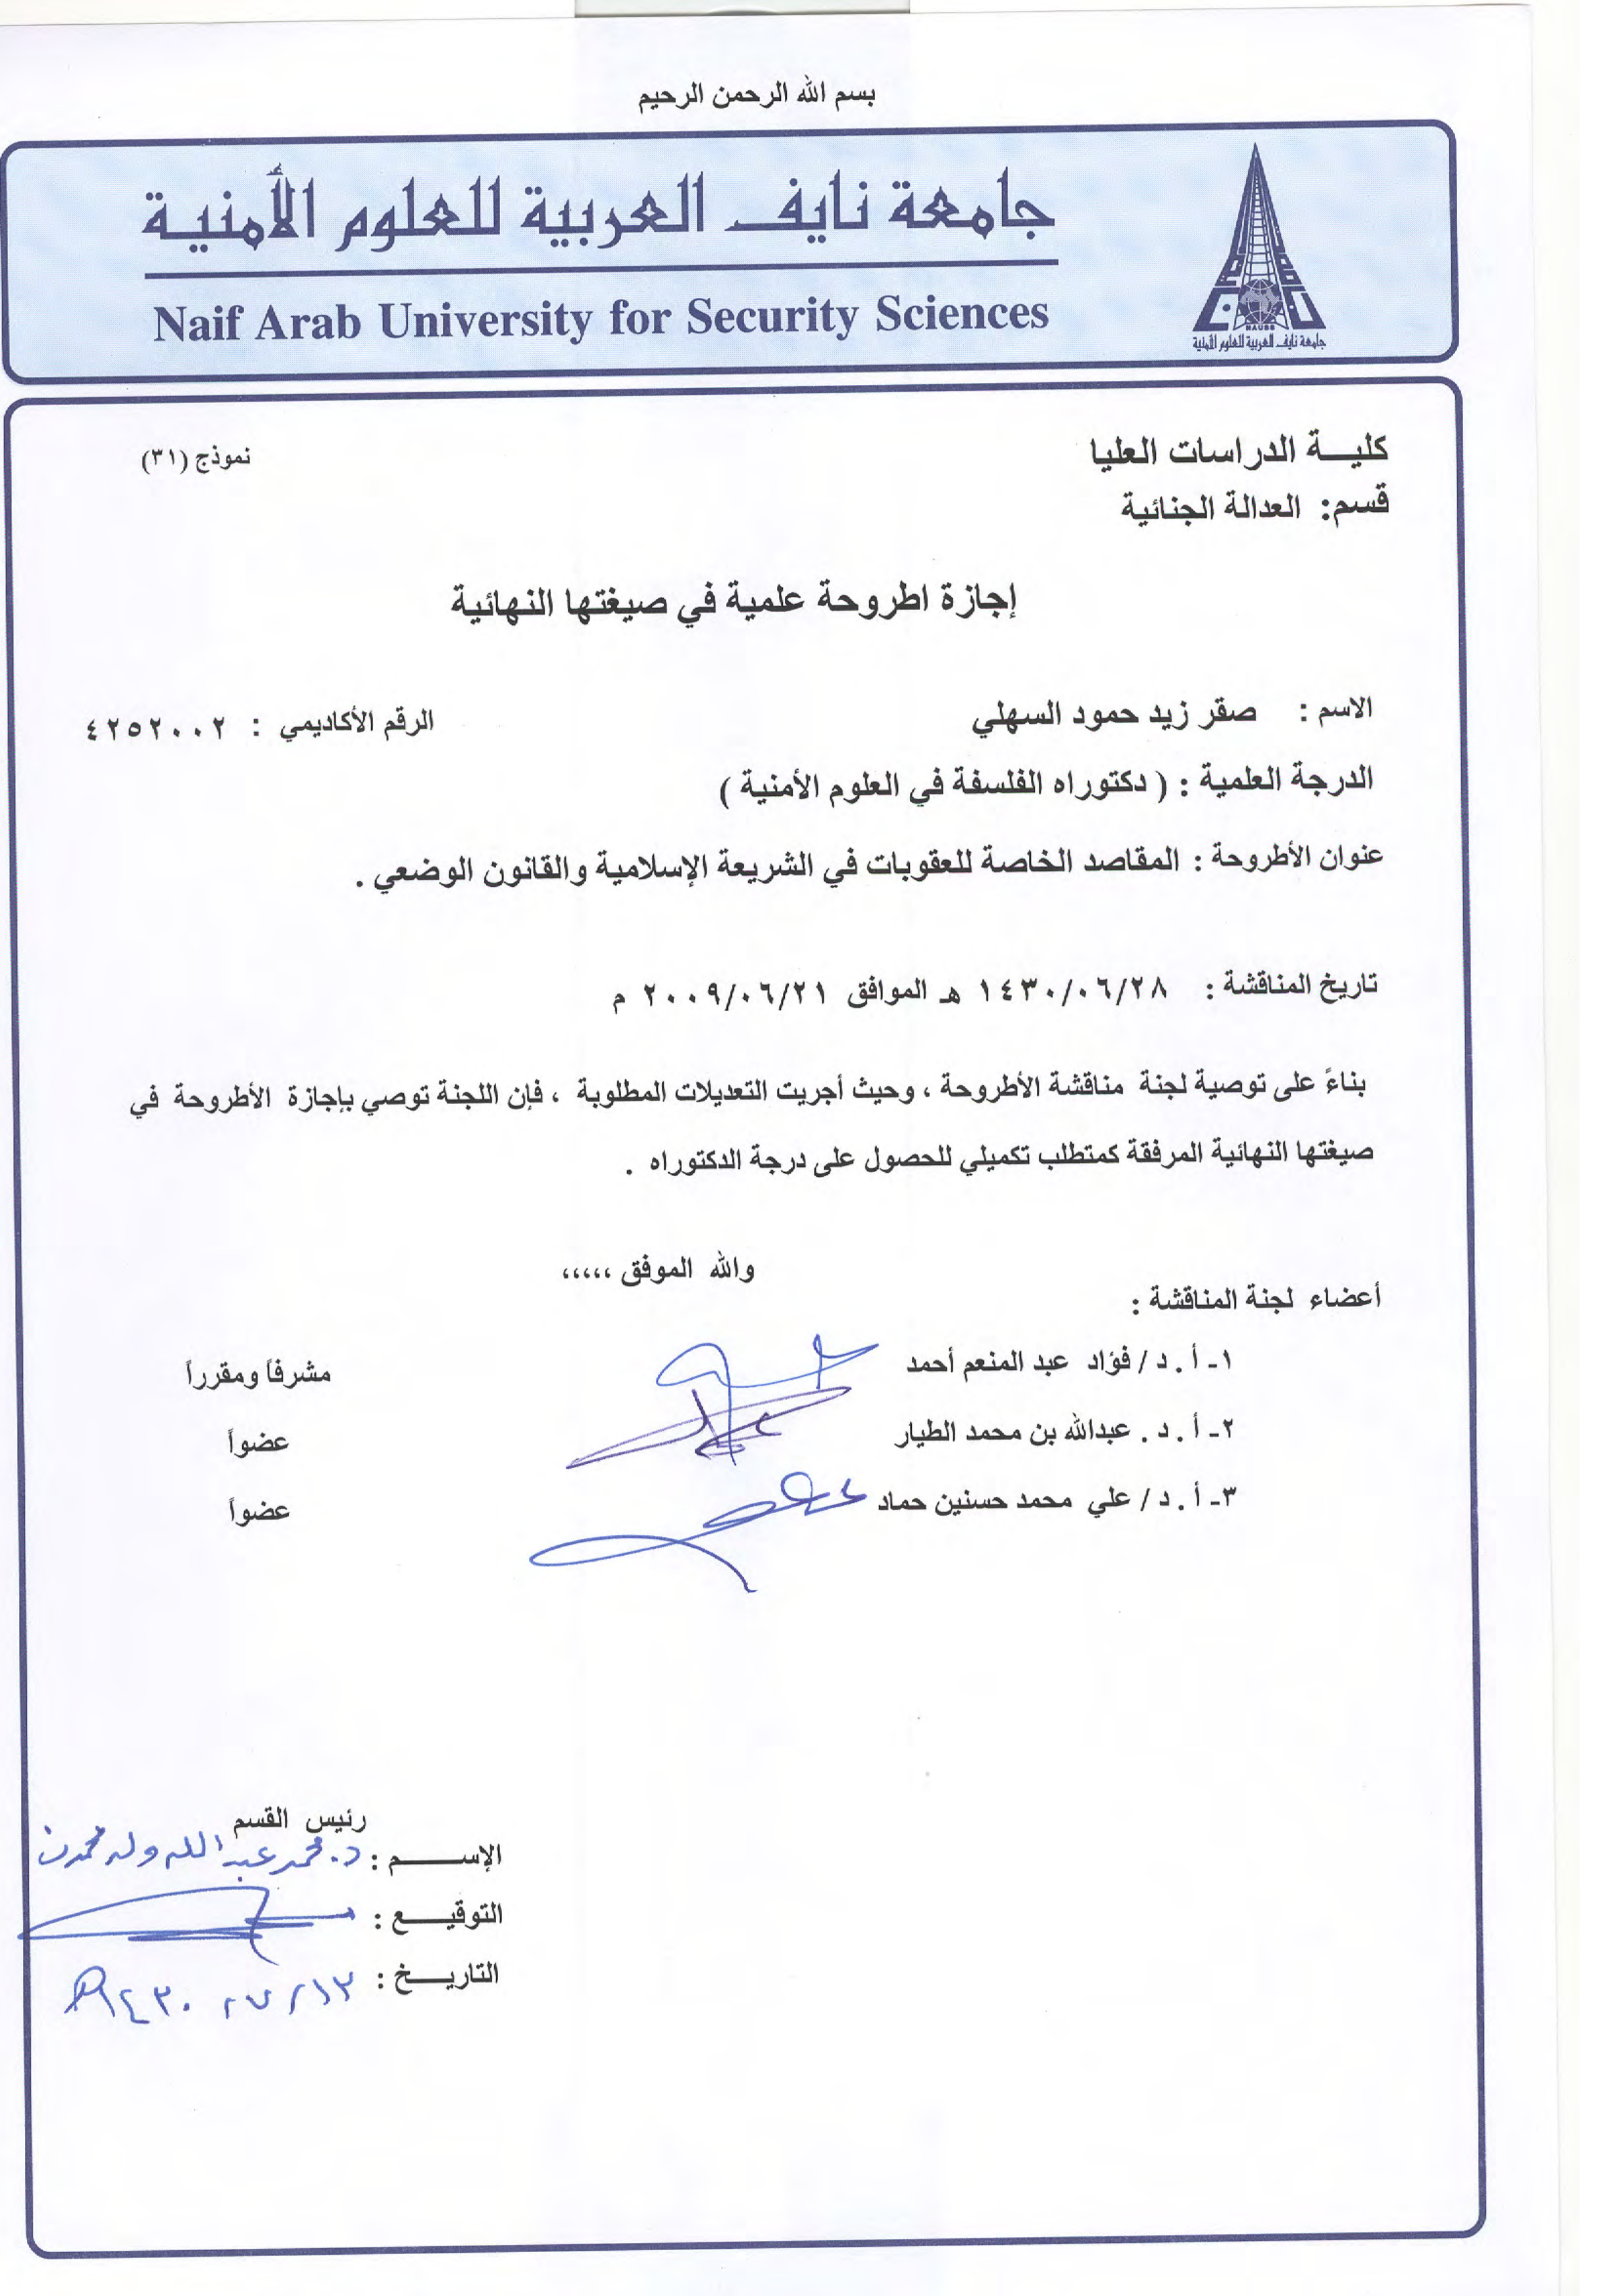 بسم الله الرحمن الرحيم
جامعة نايف العربية للعلوم الأمنية
Naif Arab University for Security Sciences
NAUSS
جامعة نايف العربية للعلوم الأمنية
كليـــة الدراسات العليا
نموذج (٣١)
قسم: العدالة الجنائية
إجازة اطروحة علمية في صيغتها النهائية
الاسم : صقر زيد حمود السهلي
الرقم الأكاديمي : ٤٢٥٢٠٠٢
الدرجة العلمية : ( دكتوراه الفلسفة في العلوم الأمنية )
عنوان الأطروحة : المقاصد الخاصة للعقوبات في الشريعة الإسلامية والقانون الوضعي .
تاريخ المناقشة : ١٤٣٠/٠٦/٢٨ هـ الموافق ٢٠٠٩/٠٦/٢١ م
بناءً على توصية لجنة مناقشة الأطروحة ، وحيث أجريت التعديلات المطلوبة ، فإن اللجنة توصي بإجازة الأطروحة في
صيغتها النهائية المرفقة كمتطلب تكميلي للحصول على درجة الدكتوراه .
والله الموفق ،،،،،
أعضاء لجنة المناقشة :
١- أ . د / فؤاد عبد المنعم أحمد مشرفاً ومقرراً
٢- أ . د . عبدالله بن محمد الطيار عضواً
٣- أ . د / علي محمد حسنين حماد عضواً
رئيس القسم
الإســـــــم : د. محمد عبد الله ولد محمدن
التوقيــــع :
التاريــــخ : ١٣ / ٧ / ١٤٣٠هـ